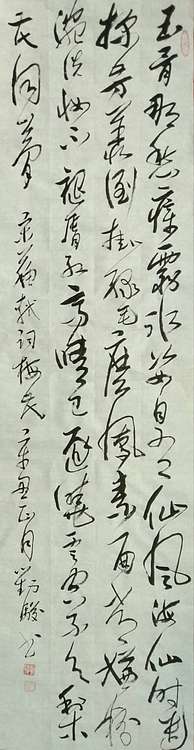 玉骨那愁瘴霧冰姿自有仙風海仙時遣
探芳叢倒掛綠毛麼鳳素面常嫌粉
涴洗妝不褪唇紅高情已逐曉雲空不與梨
花同夢 宋蘇軾詞梅花 辛丑正月 劉駿書